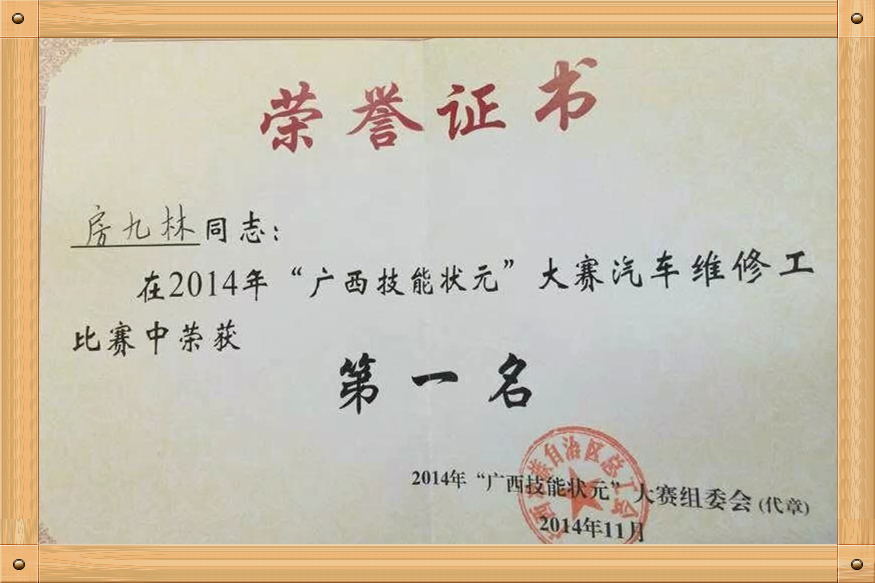 荣誉证书
房九林同志：
在2014年“广西技能状元”大赛汽车维修工
比赛中荣获
第一名
2014年“广西技能状元”大赛组委会(代章)
2014年11月
族自治区总工会